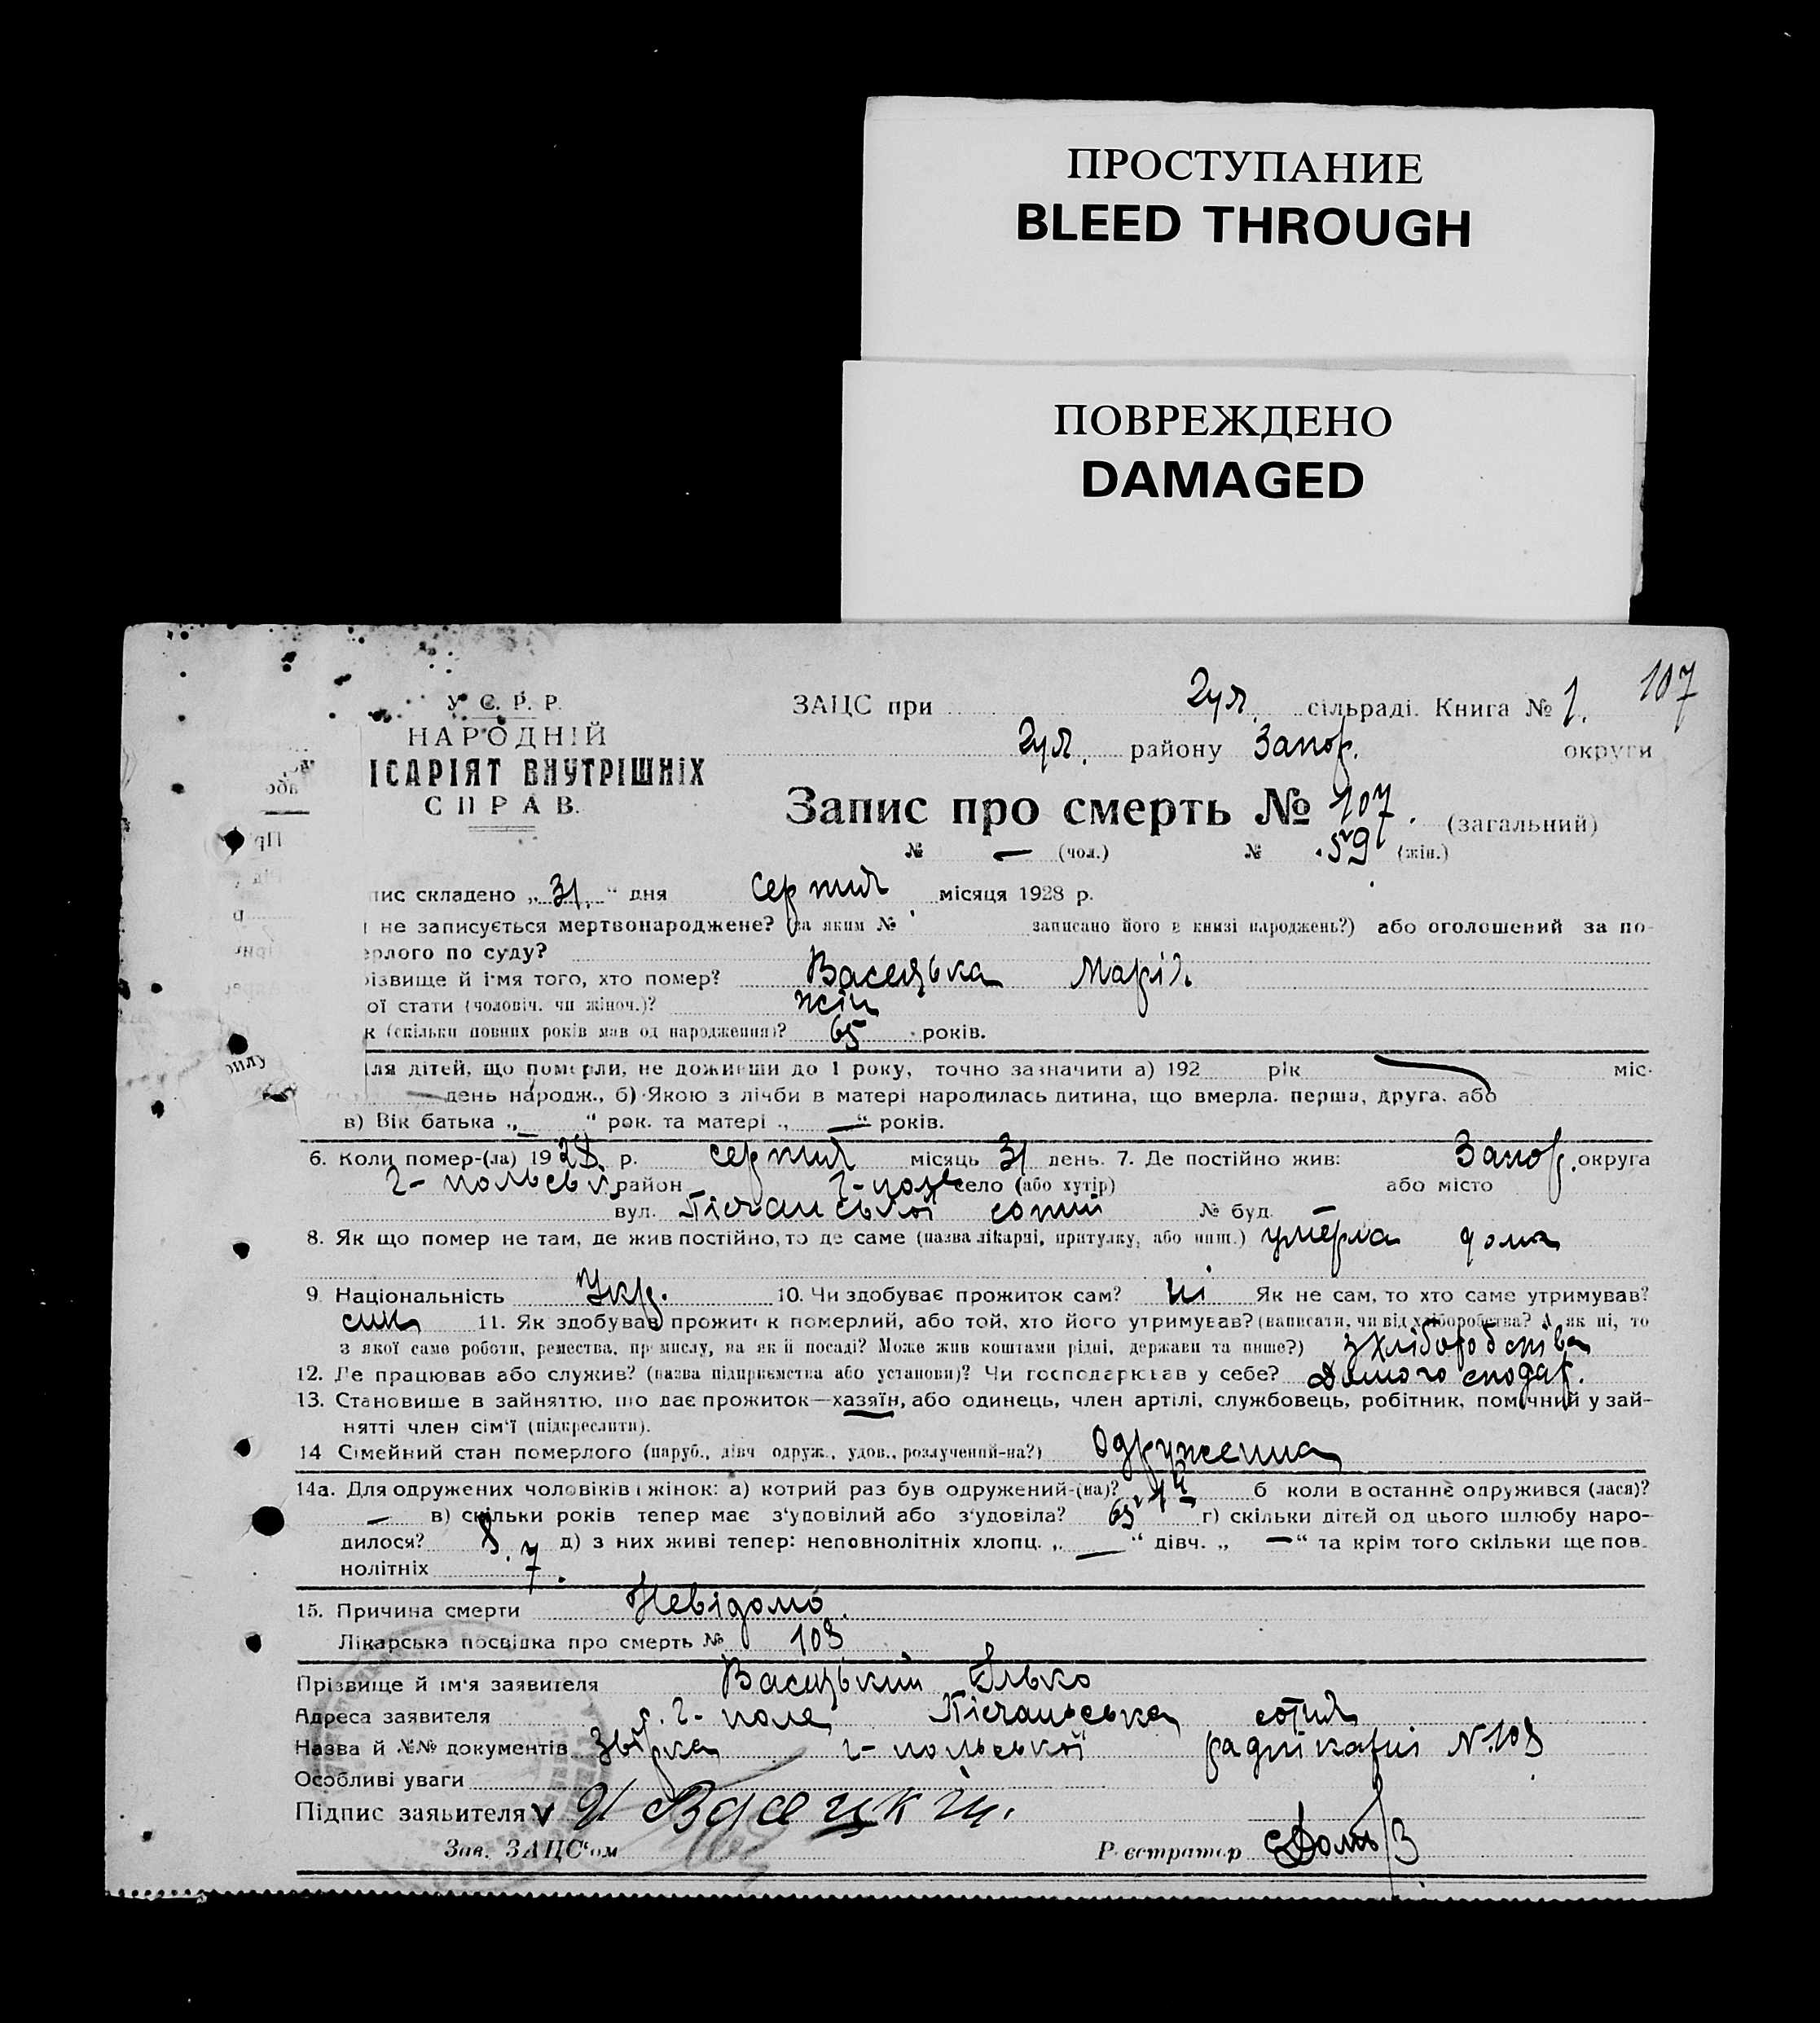 ПРОСТУПАНИЕ
BLEED THROUGH
ПОВРЕЖДЕНО
DAMAGED
107
У. С. Р. Р.
НАРОДНІЙ
ІСАРІЯТ ВНУТРІШНІХ
СПРАВ.
ЗАЦС при Гул. сільраді. Книга № 1.
Гул. району Запор. округи
Запис про смерть № 107. (загальний)
№ — (чол.) № 59 (жін.)
пис складено „31.“ дня серпня місяця 1928 р.
не записується мертвонароджене? (за яким № записано його в книзі народжень?) або оголошений за по-
ерлого по суду?
різвище й імя того, хто помер? Васецька Марія
ої стати (чоловіч. чи жіноч.)? жін
к (скільки повних років мав од народження)? 65 років.
ля дітей, що померли, не доживши до 1 року, точно зазначити а) 192 рік міс-
— день народж., б) Якою з лічби в матері народилась дитина, що вмерла. перша, друга. або
в) Вік батька „—“ рок. та матері „—“ років.
6. Коли помер-(ла) 1928 р. серпня місяць 31 день. 7. Де постійно жив: Запор. округа
Г-польськ. район Г-поле село (або хутір) або місто
вул. Пісчанської сотні № буд. —
8. Як що помер не там, де жив постійно, то де саме (назва лікарні, притулку, або инш.) умерла дома
9. Національність Укр. 10. Чи здобуває прожиток сам? ні Як не сам, то хто саме утримував?
син 11. Як здобував прожиток померлий, або той, хто його утримував? (написати, чи від хліборобства? А як ні, то
з якої саме роботи, ремества, промислу, на якій посаді? Може жив коштами рідні, держави та инше?) з хліборобства
12. Де працював або служив? (назва підприємства або установи)? Чи господарював у себе? Дамого сподар.
13. Становище в зайняттю, що дає прожиток—хазяїн, або одинець, член артілі, службовець, робітник, помічний у зай-
нятті член сім'ї (підкреслити).
14 Сімейний стан померлого (паруб., дівч одруж., удов., розлучений-на?) Одруженна
14а. Для одружених чоловіків і жінок: а) котрий раз був одружений-(на)? 1й б коли в останнє одружився (лася)?
— в) скільки років тепер має з'удовілий або з'удовіла? 65 г) скільки дітей од цього шлюбу наро-
дилося? 8. д) з них живі тепер: неповнолітніх хлопц. „—“ дівч. „—“ та крім того скільки ще пов-
нолітніх 7.
15. Причина смерти Невідомо.
Лікарська посвідка про смерть № 103
Прізвище й ім'я заявителя Васецький Ілько
Адреса заявителя с. Г-поле, Пісчанська сотня
Назва й №№ документів Звірка Г-польської райлікарні N.103
Особливі уваги
Підпис заявителя V И Васецкій.
Зав. ЗАЦС'ом Реєстратор